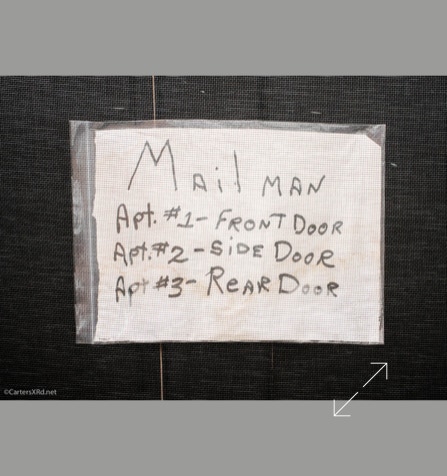 Mail MAN
Apt. #1- FRONT DOOR
Apt. #2 - SiDE DOOR
Apt #3- REAR DOOR
©CartersXRd.net